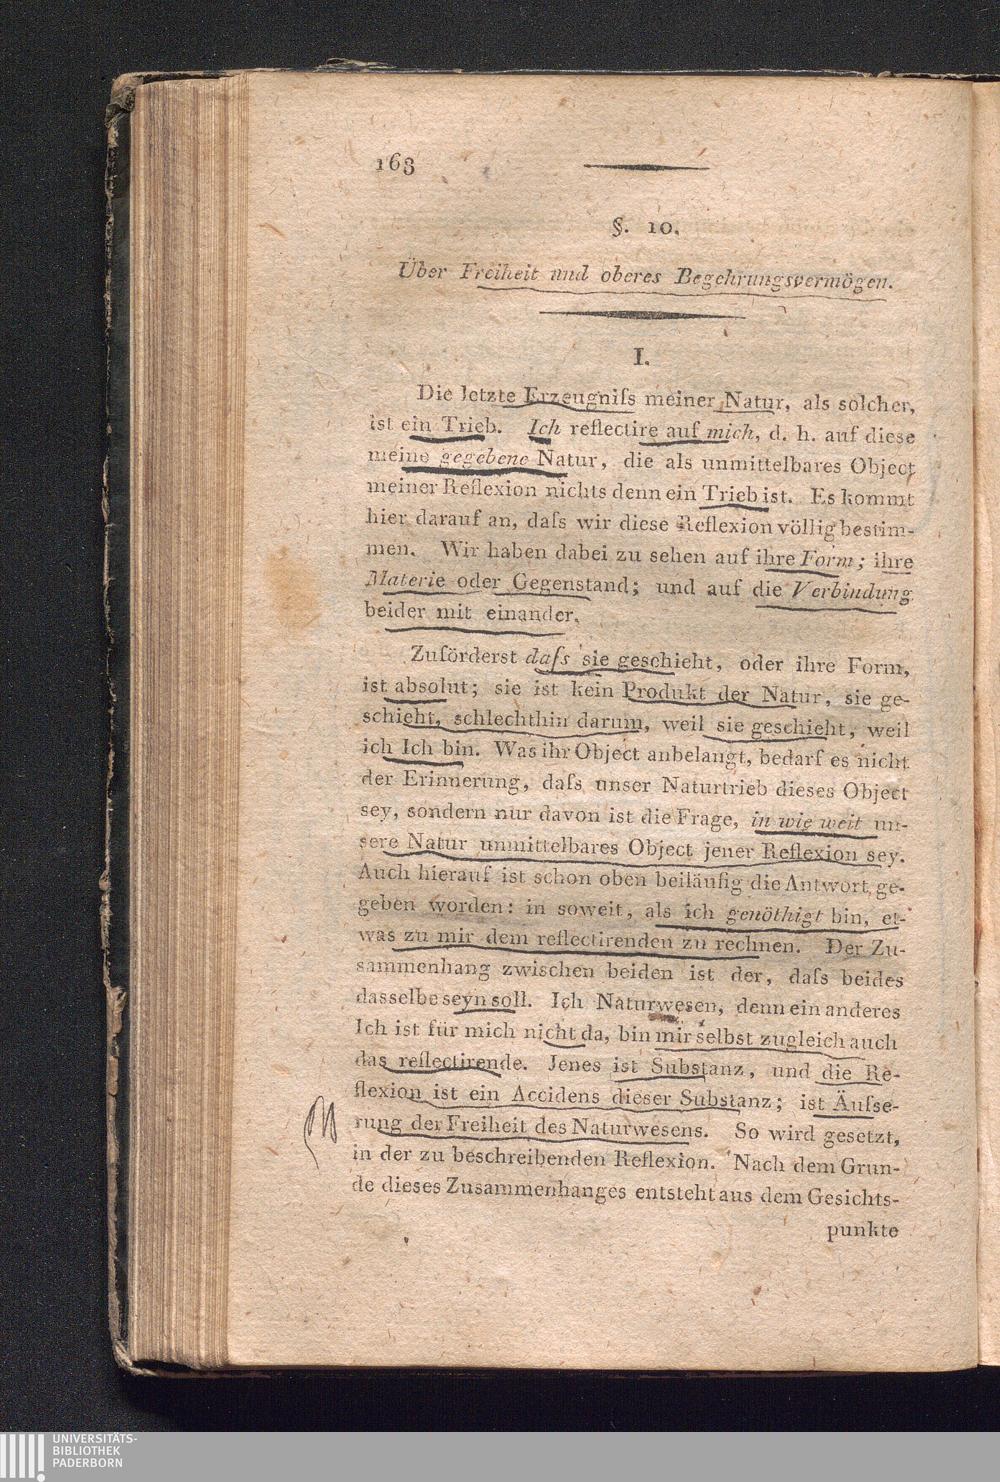 163
§. 10.
Über Freiheit und oberes Begehrungsvermögen.
I.
Die letzte Erzeugniſs meiner Natur, als solcher,
ist ein Trieb. Ich reflectire auf mich, d. h. auf diese
meine gegebene Natur, die als unmittelbares Object
meiner Reflexion nichts denn ein Trieb ist. Es kommt
hier darauf an, daſs wir diese Reflexion völlig bestim-
men. Wir haben dabei zu sehen auf ihre Form; ihre
Materie oder Gegenstand; und auf die Verbindung
beider mit einander.
Zuförderst daſs sie geschieht, oder ihre Form,
ist absolut; sie ist kein Produkt der Natur, sie ge-
schieht, schlechthin darum, weil sie geschieht, weil
ich Ich bin. Was ihr Object anbelangt, bedarf es nicht
der Erinnerung, daſs unser Naturtrieb dieses Object
sey, sondern nur davon ist die Frage, in wie weit un-
sere Natur unmittelbares Object jener Reflexion sey.
Auch hierauf ist schon oben beiläufig die Antwort ge-
geben worden: in soweit, als ich genöthigt bin, et-
was zu mir dem reflectirenden zu rechnen. Der Zu-
sammenhang zwischen beiden ist der, daſs beides
dasselbe seyn soll. Ich Naturwesen, denn ein anderes
Ich ist für mich nicht da, bin mir selbst zugleich auch
das reflectirende. Jenes ist Substanz, und die Re-
flexion ist ein Accidens dieser Substanz; ist Äuſse-
rung der Freiheit des Naturwesens. So wird gesetzt,
in der zu beschreibenden Reflexion. Nach dem Grun-
de dieses Zusammenhanges entsteht aus dem Gesichts-
punkte
UNIVERSITÄTS-
BIBLIOTHEK
PADERBORN